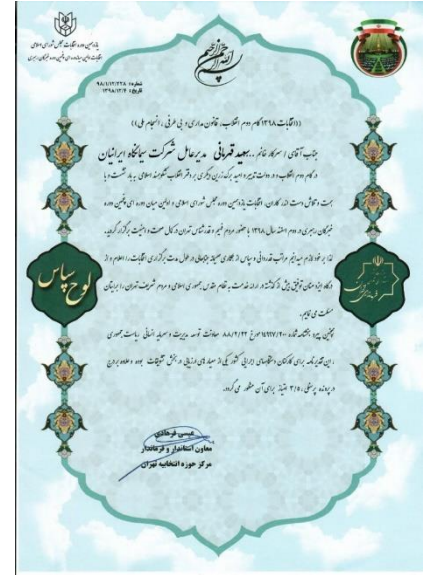 یازدهمین دوره انتخابات مجلس شورای اسلامی
بسم الله الرحمن الرحیم
شماره: ۹۸/۱/۱۲/۲۲۸
تاریخ: ۱۳۹۸/۱۲/۴
((انتخابات ۱۳۹۸ گام دوم انقلاب، قانون مداری و بی طرفی، انسجام ملی))
جناب آقای / سرکار خانم ... سعید قهرمانی مدیرعامل شرکت سیمانگاه ایرانیان
در گام دوم انقلاب و در دولت تدبیر و امید برگ زرین دیگری بر دفتر انقلاب شکوهمند اسلامی به بار نشست و با
همت و تلاش دست اندرکاران، انتخابات یازدهمین دوره مجلس شورای اسلامی و اولین میان دوره ای پنجمین دوره
خبرگان رهبری در دوم اسفند سال ۱۳۹۸ با حضور مردم فهیم و قدرشناس تهران در کمال صحت و امنیت برگزار گردید.
لذا بر خود لازم میدانم مراتب قدردانی و سپاس از همکاری صمیمانه جنابعالی در طول مدت برگزاری انتخابات، را اعلام و از
درگاه ایزد منان توفیق بیش از گذشته در ارائه خدمت به نظام مقدس جمهوری اسلامی و مردم شریف تهران را برایتان
مسئلت می نمایم.
همچنین پیرو بخشنامه شماره ۱۴۹۲۷/۲۰۰ مورخ ۸۸/۲/۲۲ معاونت توسعه مدیریت و سرمایه انسانی ریاست جمهوری
، این تقدیرنامه برای کارکنان دستگاههای اجرایی کشور یکی از معیارهای ارزیابی در بخش تشویقات بوده و علاوه بر درج
در پرونده پرسنلی، ۳/۵ امتیاز برای آن منظور می گردد.
لوح سپاس
عیسی فرهادی
معاون استاندار و فرماندار
مرکز حوزه انتخابیه تهران